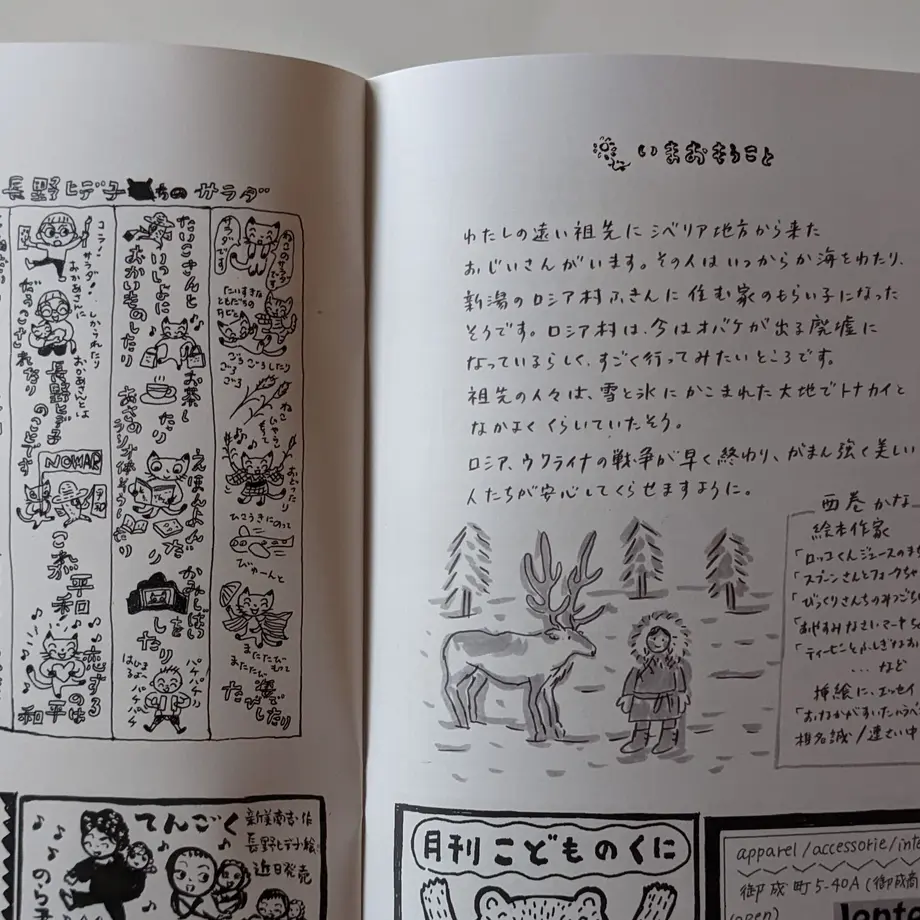 長野ヒデ子 ちの サラダ
ねこのサラダです
サラダです
だいすきな
ともだちの
ごろごろしたり
ごろごろ
ねこじゃらし
もって
おどったり
ひこうきにのって
びゅーんと
またたびもって
またたび
たびしたり
だっこさんと
いっしょに
おかいものしたり
お茶したり
あさの
ラジオ体そうしたり
えほんよんだり
かみしばい
したり
はじまるよ
パチパチ
パチパチ
コラ!サラダ!
おかあさんに
しかられたり
おかあさんとは
長野ヒデ子
のことです
だっこされたり
NOWAR
これが
平和
恋する
のは
平和
てんごく
新美南吉・作
長野ヒデ子・絵
近日発売
のら
いまおもうこと
わたしの遠い祖先にシベリア地方から来た
おじいさんがいます。その人はいつからか海をわたり、
新潟のロシア村ふきんに住む家のもらい子になった
そうです。ロシア村は、今はオバケが出る廃墟に
なっているらしく、すごく行ってみたいところです。
祖先の人々は、雪と氷にかこまれた大地でトナカイと
なかよくくらしていたそう。
ロシア、ウクライナの戦争が早く終わり、がまん強く美しい
人たちが安心してくらせますように。
西巻かな
絵本作家
「ロッコくんジュースのまち
「スプーンさんとフォークちゃ
「びっくりさんちのみつごち
「おやすみなさいマーヤちゃ
「ティーセンとふしぎなお
...など
挿絵に、エッセイ
「おなかがすいたハラペ
椎名誠/連さい中
月刊こどものくに
apparel/accessorie/inte
御成町5-40A(御成商